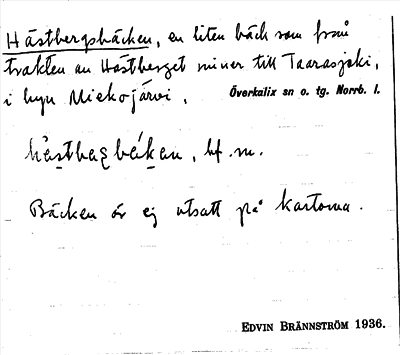 Hästbergsbäcken, en liten bäck som från
trakten av Hästberget rinner till Taarasjoki,
i byn Miekojärvi, Överkalix sn o. tg. Norrb. l.
bf. m.
Bäcken är ej utsatt på kartorna.
EDVIN BRÄNNSTRÖM 1936.